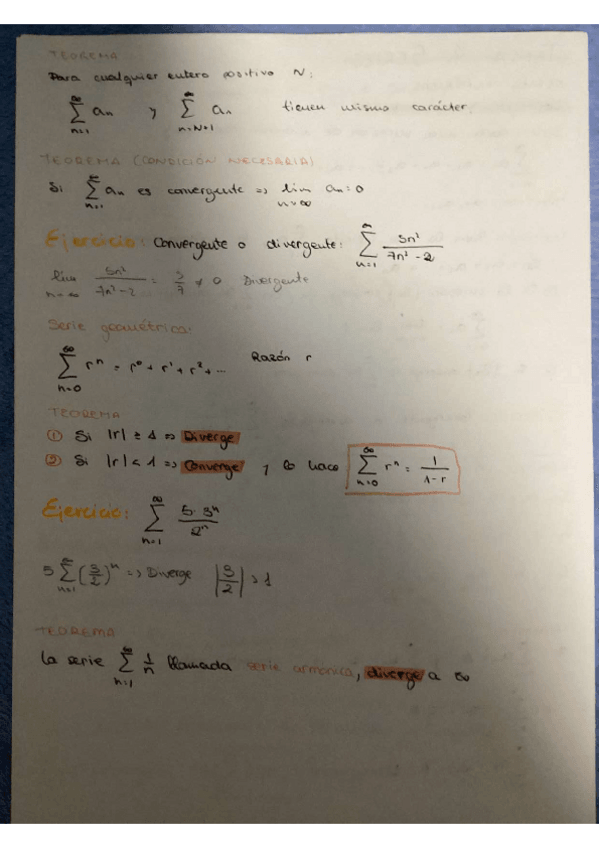 TEOREMA
Para cualquier entero positivo N:
∞∑n=1 an y ∞∑n=N+1 an tienen mismo carácter.
TEOREMA (CONDICIÓN NECESARIA)
Si ∞∑n=1 an es convergente => lim n→∞ an = 0
Ejercicio: Convergente o divergente: ∞∑n=1 5n²/7n²-2
lim n→∞ 5n²/7n²-2 = 5/7 ≠ 0 Divergente
Serie geométrica:
∞∑n=0 rⁿ = r⁰ + r¹ + r² + ... Razón r
TEOREMA
① Si |r| ≥ 1 => Diverge
② Si |r| < 1 => Converge y lo hace ∞∑n=0 rⁿ = 1/1-r
Ejercicio: ∞∑n=1 5·3ⁿ/2ⁿ
5 ∞∑n=1 (3/2)ⁿ => Diverge |3/2| > 1
TEOREMA
La serie ∞∑n=1 1/n llamada serie armónica, diverge a ∞